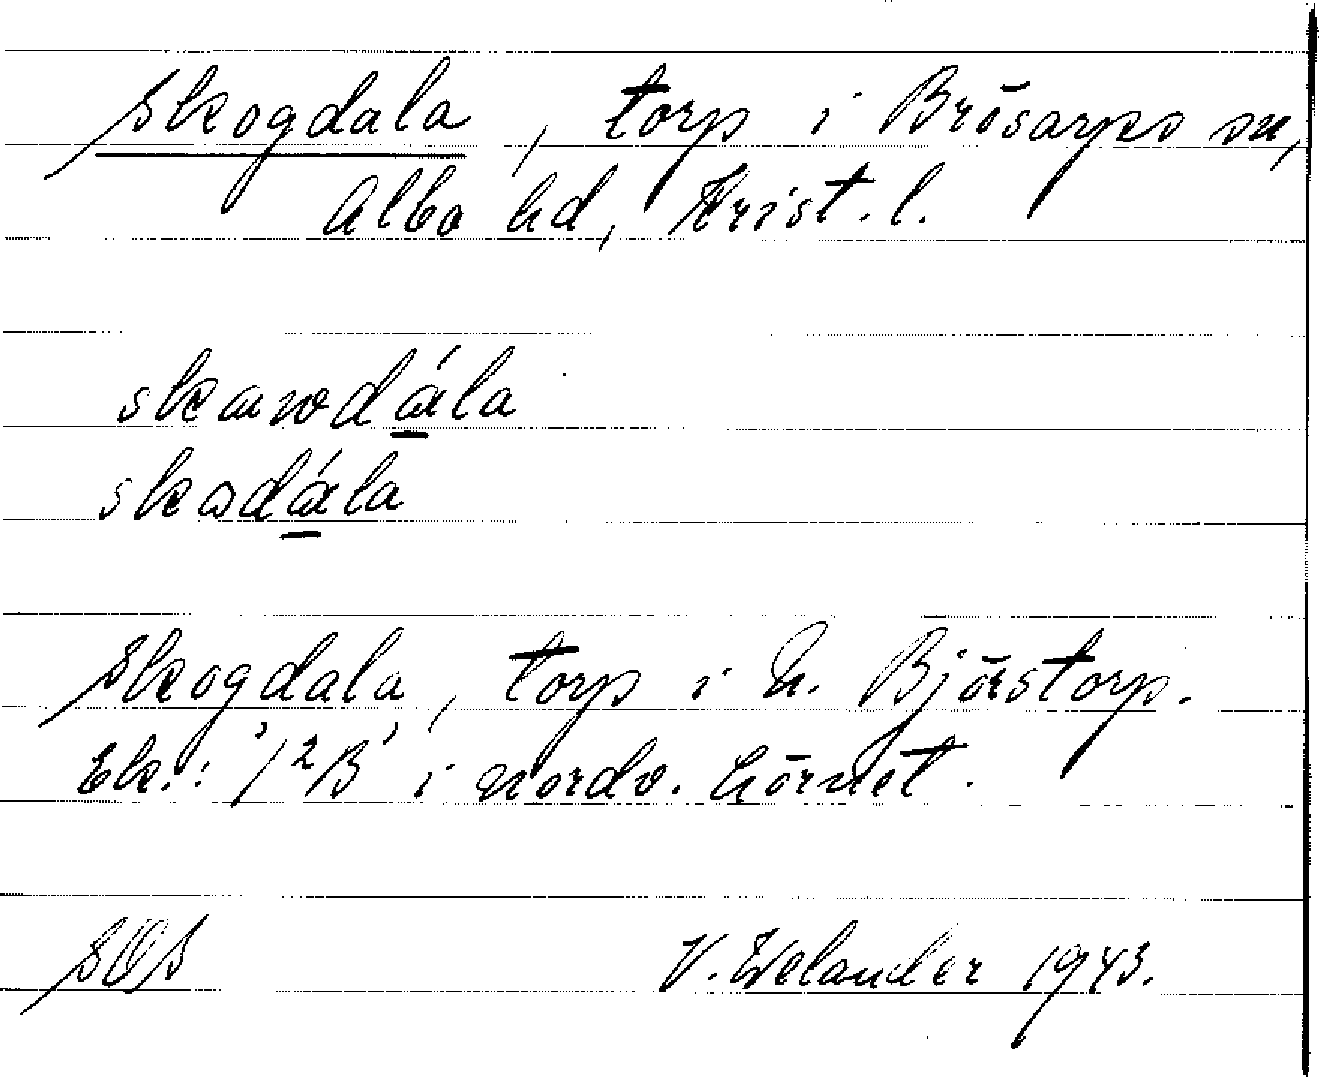 Skogdala, torp i Brösarps sn,
Albo hd, Krist. l.
skawdála
skadála
Skogdala, torp i N. Björstorp.
Ek.: '1²B' i nordv. hörnet.
SOS V. Welander 1943.